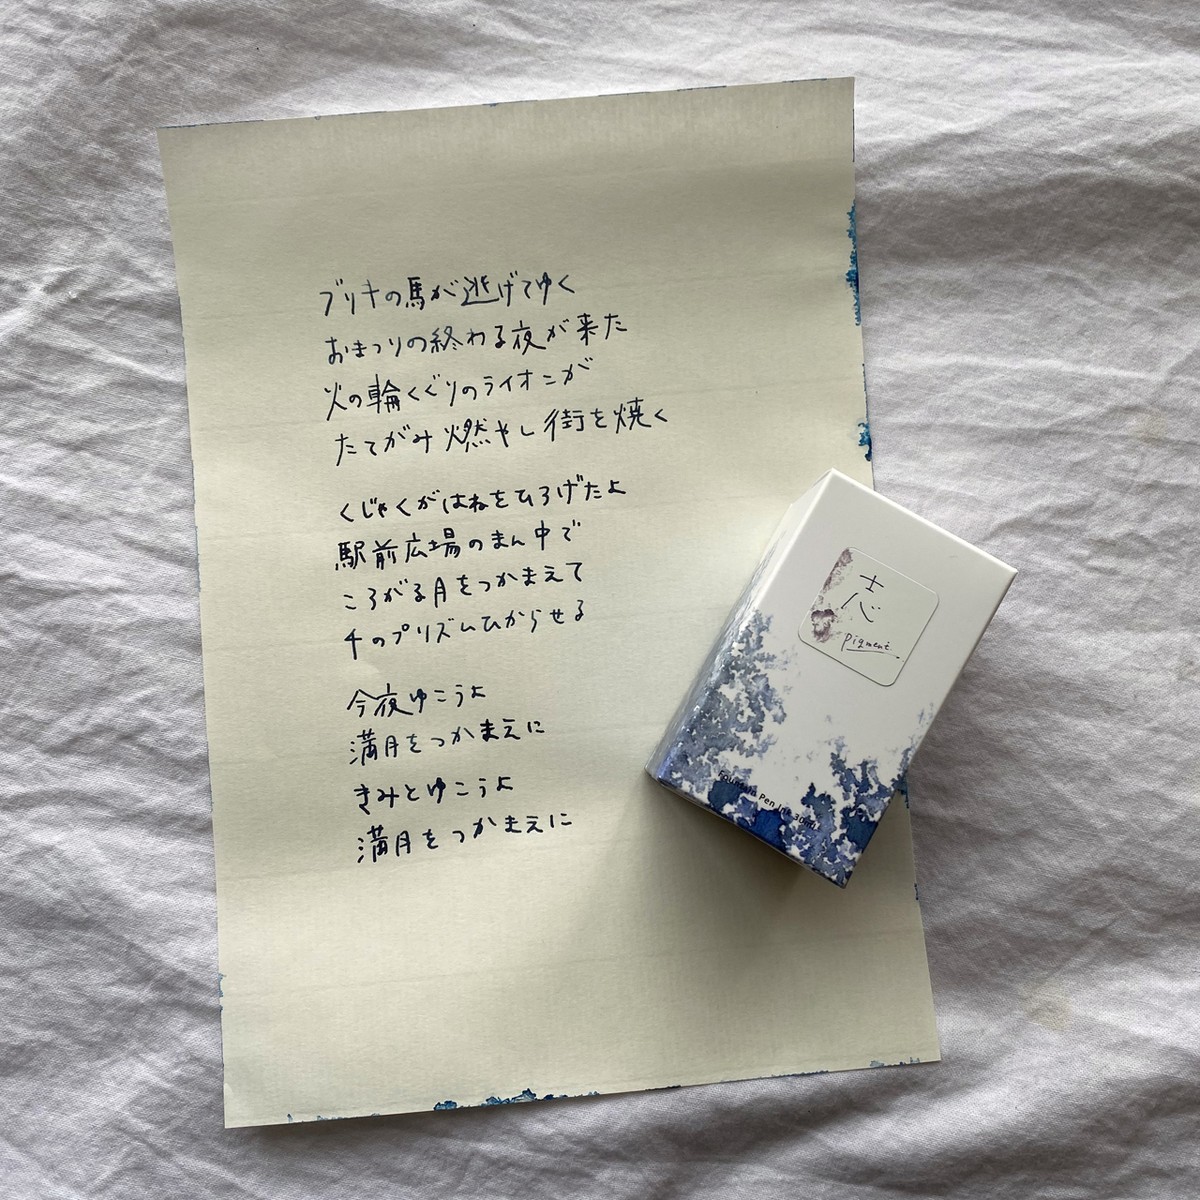 ブリキの馬が逃げてゆく
おまつりの終わる夜が来た
火の輪くぐりのライオンが
たてがみ燃やし街を焼く
くじゃくがはねをひろげたよ
駅前広場のまん中で
ころがる月をつかまえて
千のプリズムひからせる
今夜ゆこうよ
満月をつかまえに
きみとゆこうよ
満月をつかまえに
志
pigment
Fountain Pen Ink 30ml